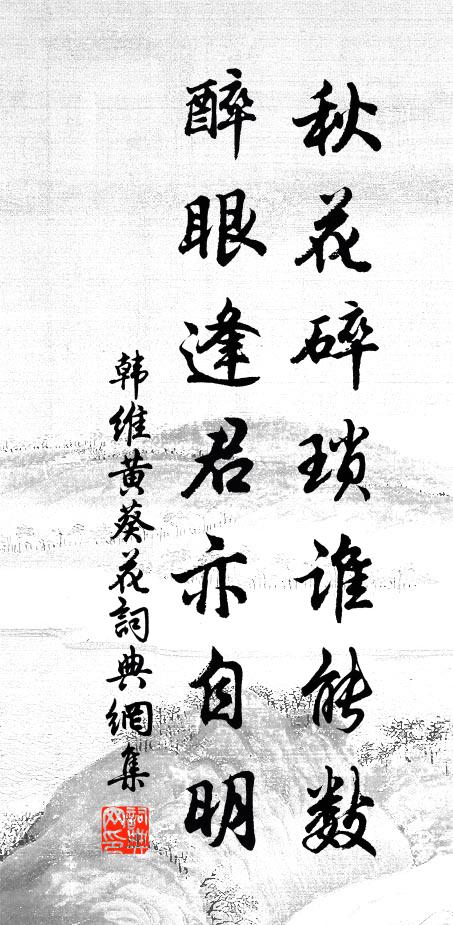 秋花碎瑣谁能数
醉眼逢君亦自明
韩維黄葵花詞典網集